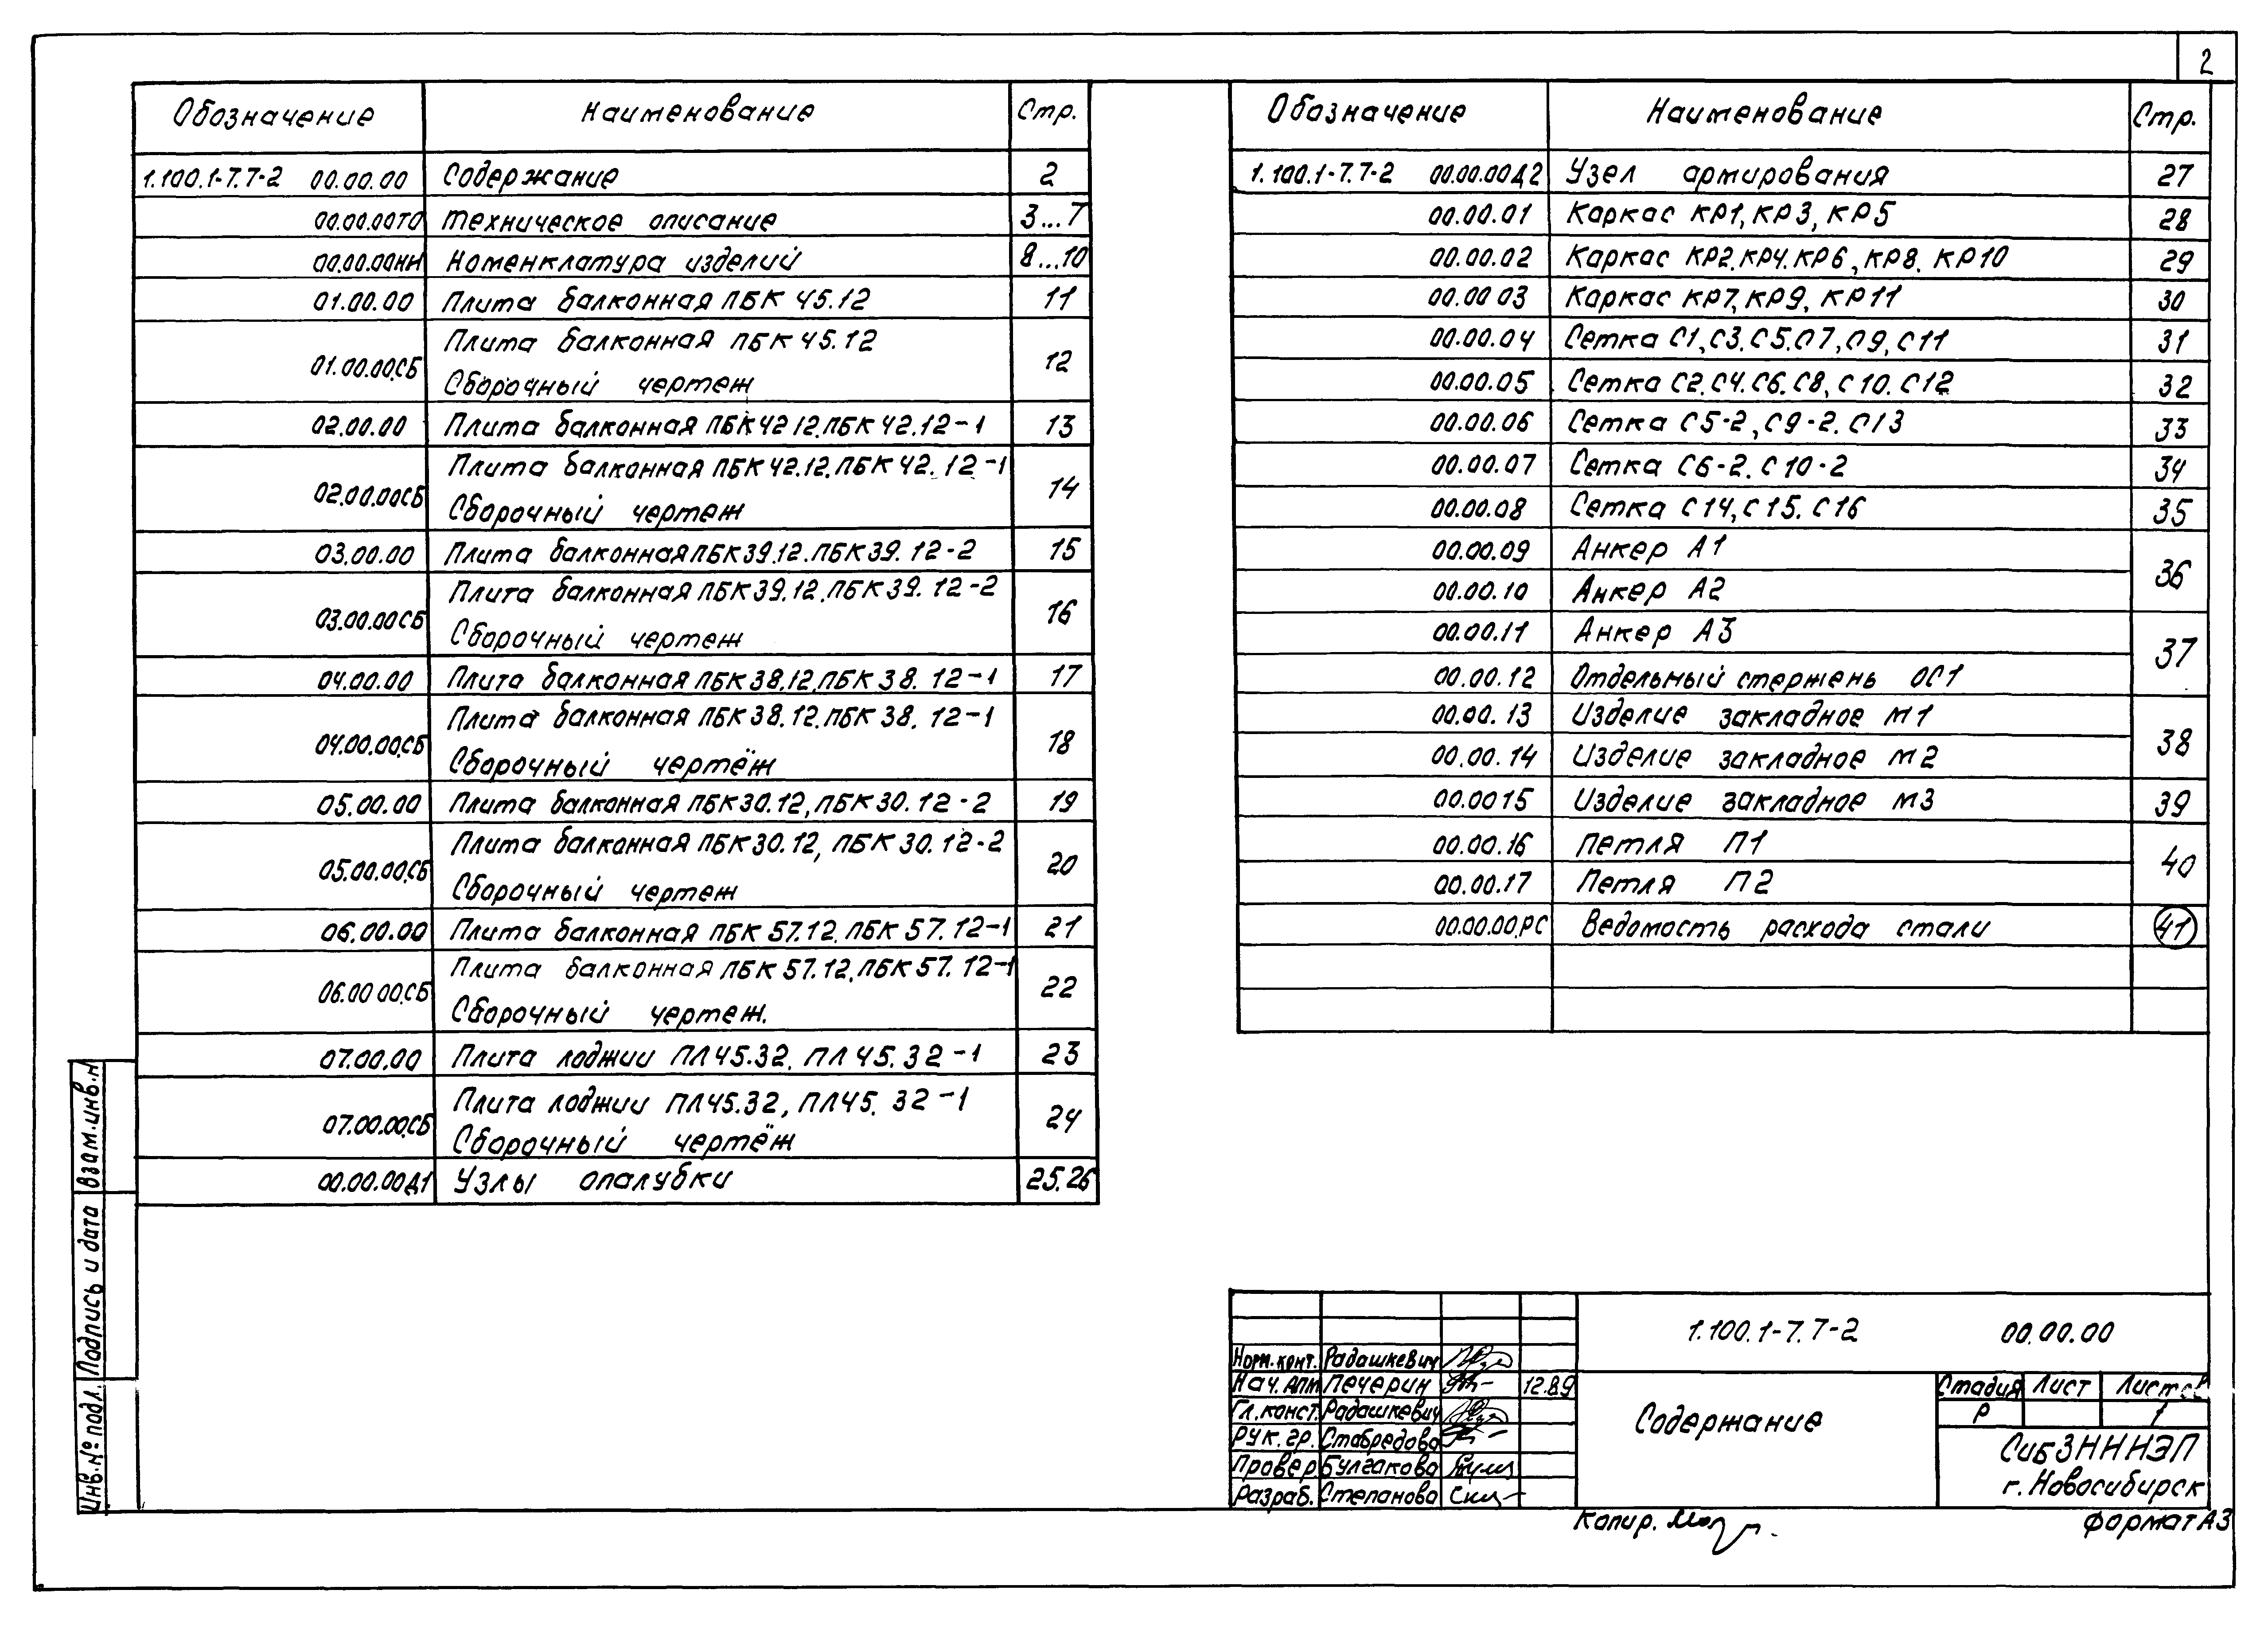 2
Обозначение Наименование Стр.
1.100.1-7.7-2 00.00.00 Содержание 2
00.00.00ТО Техническое описание 3...7
00.00.00НИ Номенклатура изделий 8...10
01.00.00 Плита балконная ПБК 45.12 11
Плита балконная ПБК 45.12
01.00.00.СБ 12
Сборочный чертеж
02.00.00 Плита балконная ПБК 42 12. ПБК 42.12-1 13
Плита балконная ПБК 42.12. ПБК 42.12-1
02.00.00СБ 14
Сборочный чертеж
03.00.00 Плита балконная ПБК 39.12. ПБК 39.12-2 15
Плита балконная ПБК 39.12. ПБК 39.12-2
03.00.00СБ 16
Сборочный чертеж
04.00.00 Плита балконная ПБК 38.12, ПБК 38.12-1 17
Плита балконная ПБК 38.12. ПБК 38.12-1
04.00.00.СБ 18
Сборочный чертёж
05.00.00 Плита балконная ПБК 30.12, ПБК 30.12-2 19
Плита балконная ПБК 30.12, ПБК 30.12-2
05.00.00.СБ 20
Сборочный чертеж
06.00.00 Плита балконная ПБК 57.12. ПБК 57.12-1 21
Плита балконная ПБК 57.12, ПБК 57.12-1
06.00 00.СБ 22
Сборочный чертеж.
07.00.00 Плита лоджии ПЛ 45.32. ПЛ 45.32-1 23
Плита лоджии ПЛ45.32, ПЛ45.32-1
07.00.00.СБ 24
Сборочный чертёж
00.00.00Д1 Узлы опалубки 25.26
Обозначение Наименование Стр.
1.100.1-7.7-2 00.00.00Д2 Узел армирования 27
00.00.01 Каркас КР1, КР3, КР5 28
00.00.02 Каркас КР2. КР4. КР6, КР8. КР10 29
00.00 03 Каркас КР7, КР9, КР11 30
00.00.04 Сетка С1, С3. С5. С7, С9, С11 31
00.00.05 Сетка С2. С4. С6. С8, С10. С12 32
00.00.06 Сетка С5-2, С9-2. С13 33
00.00.07 Сетка С6-2. С10-2 34
00.00.08 Сетка С14, С15. С16 35
00.00.09 Анкер А1
36
00.00.10 Анкер А2
00.00.11 Анкер А3
37
00.00.12 Отдельный стержень ОС1
00.00.13 Изделие закладное М1
38
00.00.14 Изделие закладное М2
00.0015 Изделие закладное М3 39
00.00.16 Петля П1
40
00.00.17 Петля П2
00.00.00.РС Ведомость расхода стали 41
Взам.инв.N
Подпись и дата
Инв.№ подл.
1.100.1-7.7-2 00.00.00
Норм.конт. Радашкевич
Нач.АПМ Печерин 12.89
Гл.конст. Радашкевич
Рук.гр. Стабредова
Провер Булгакова
Разраб. Степанова
Содержание
Стадия Лист Листов
Р 1
СибЗННИЭП
г.Новосибирск
Копир.
Формат А3